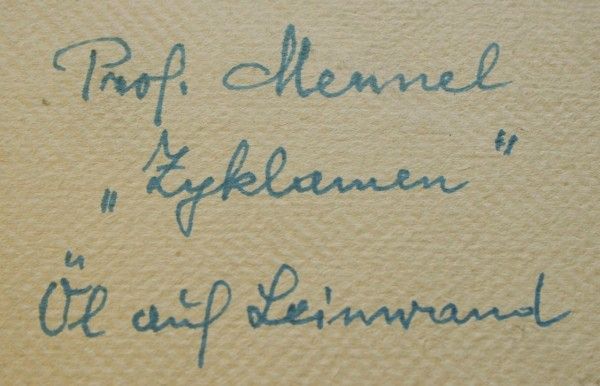 Prof. Mennel
„Zyklamen"
Öl auf Leinwand